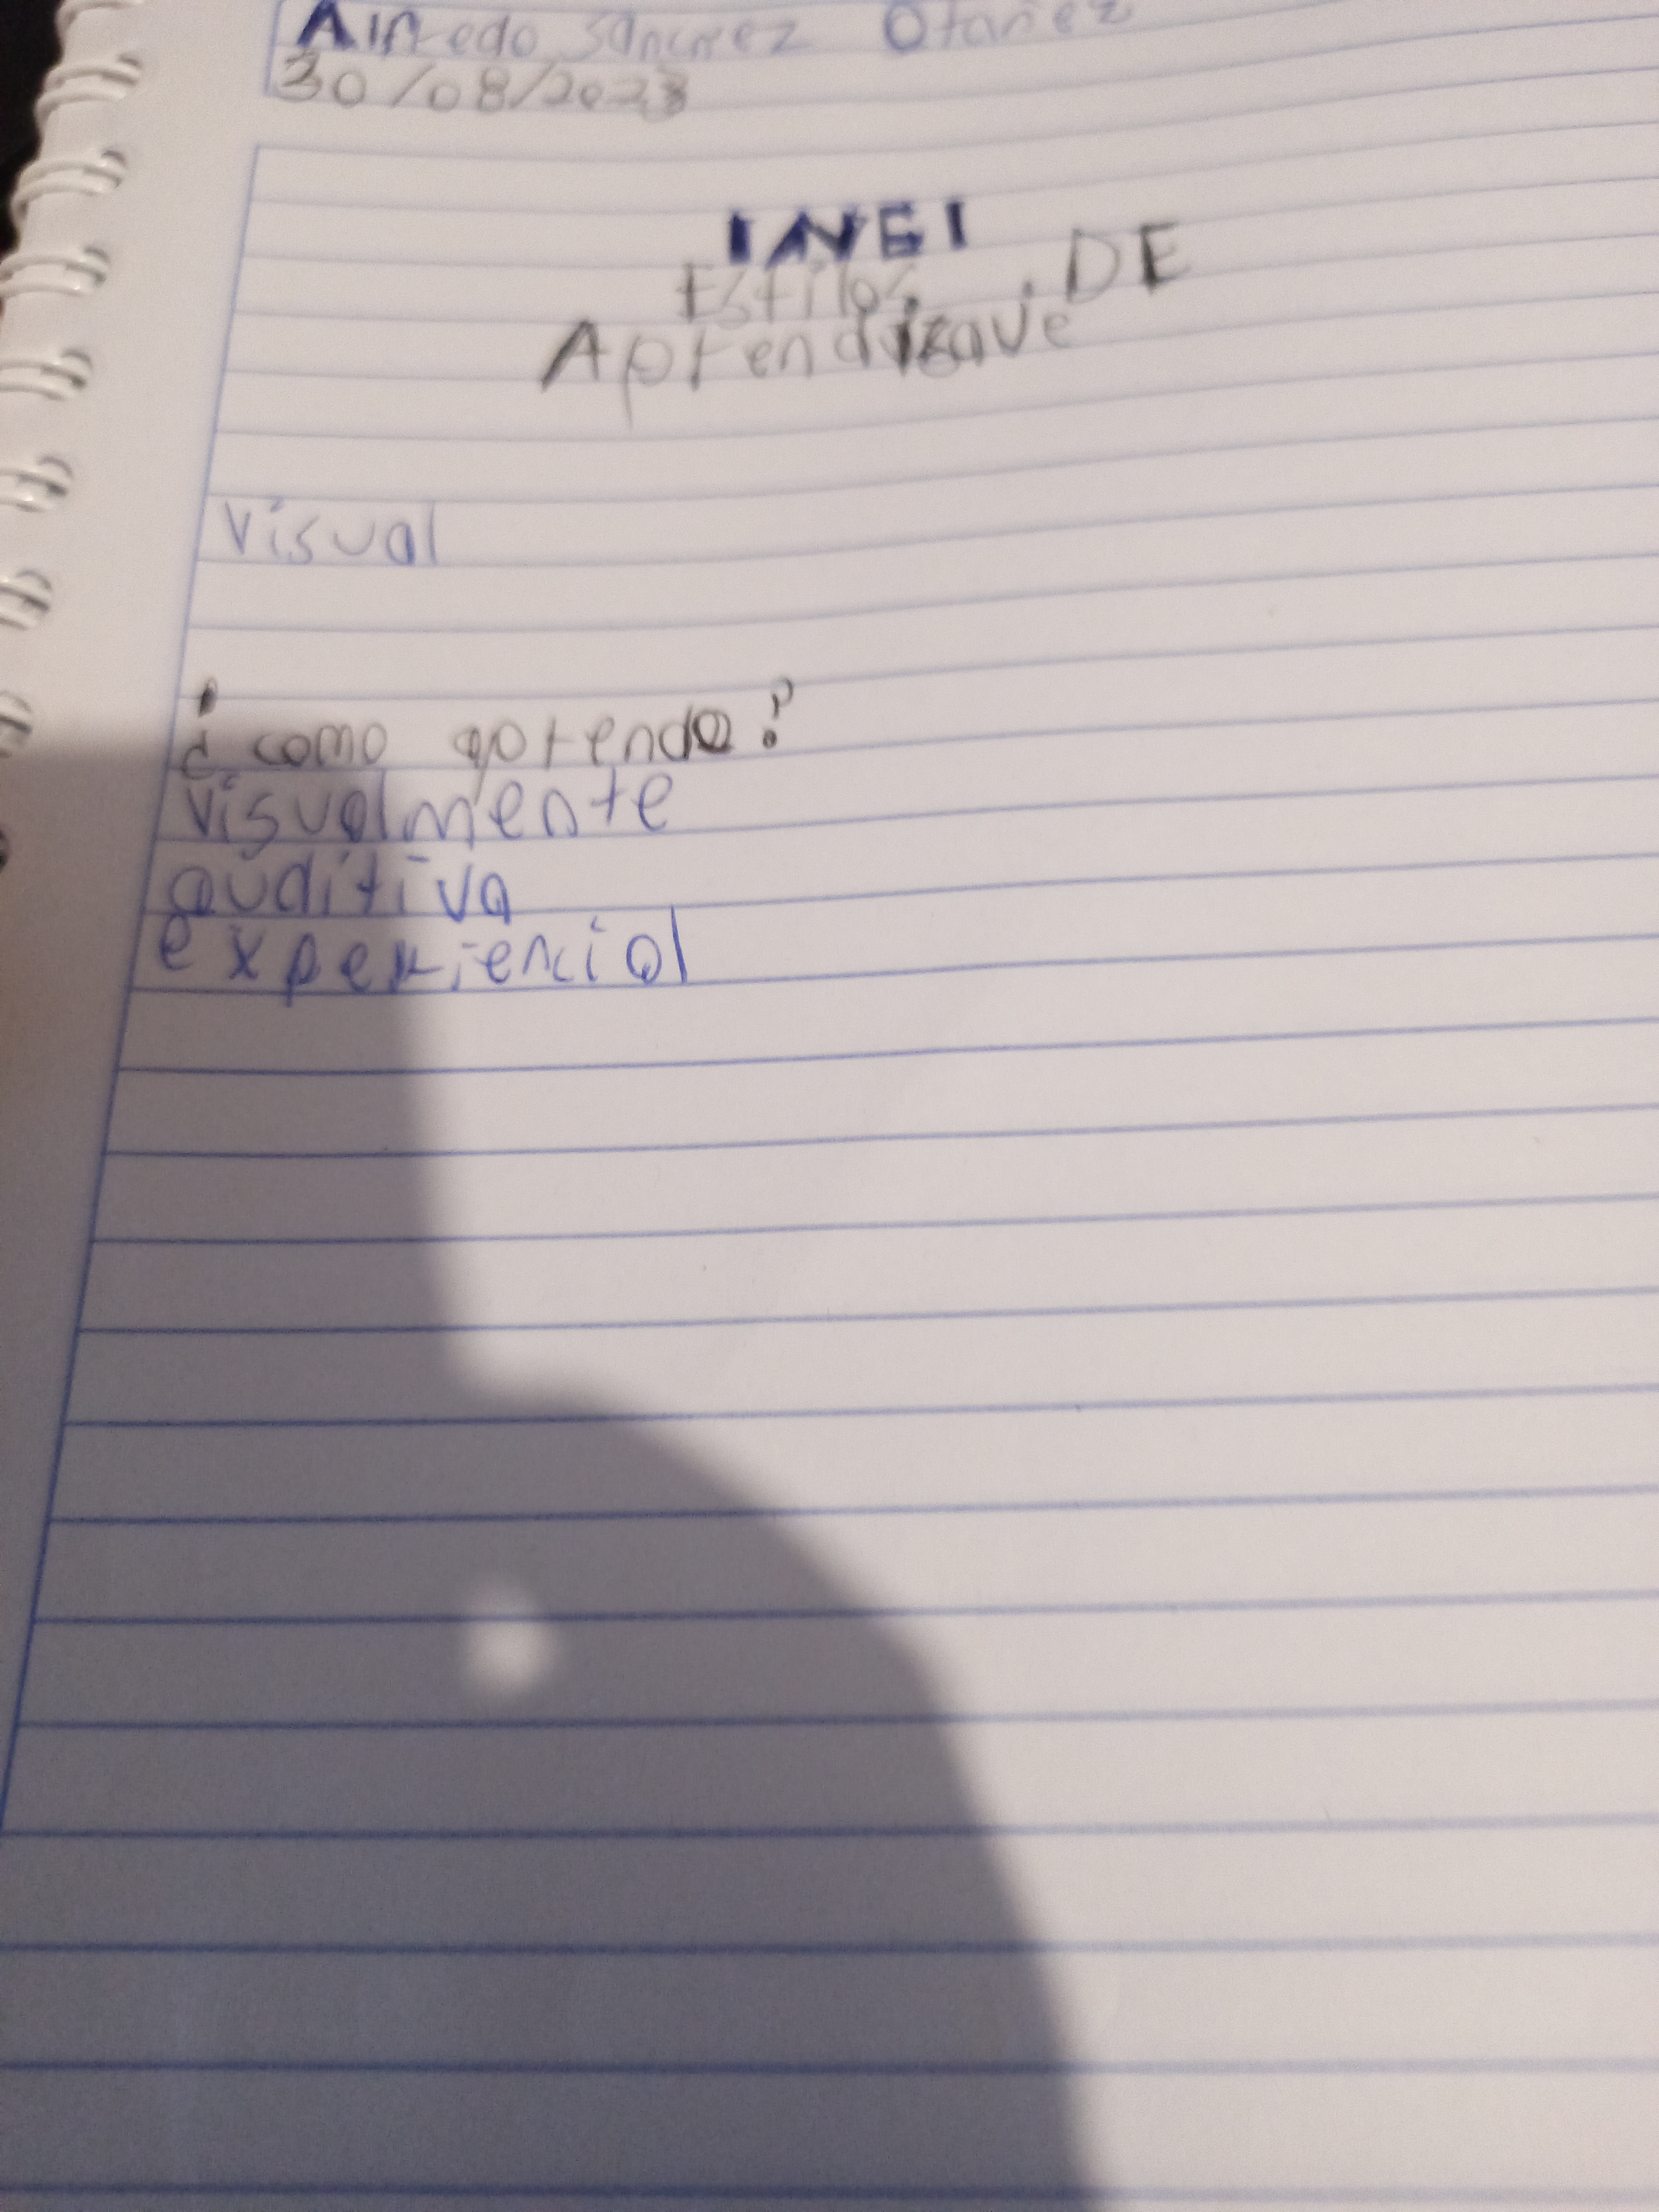 Alfredo Sánchez Otañez
30/08/2023
INEI
Estilos DE
Aprendizaje
Visual
¿como aprendo?
visualmente
auditiva
experiencial